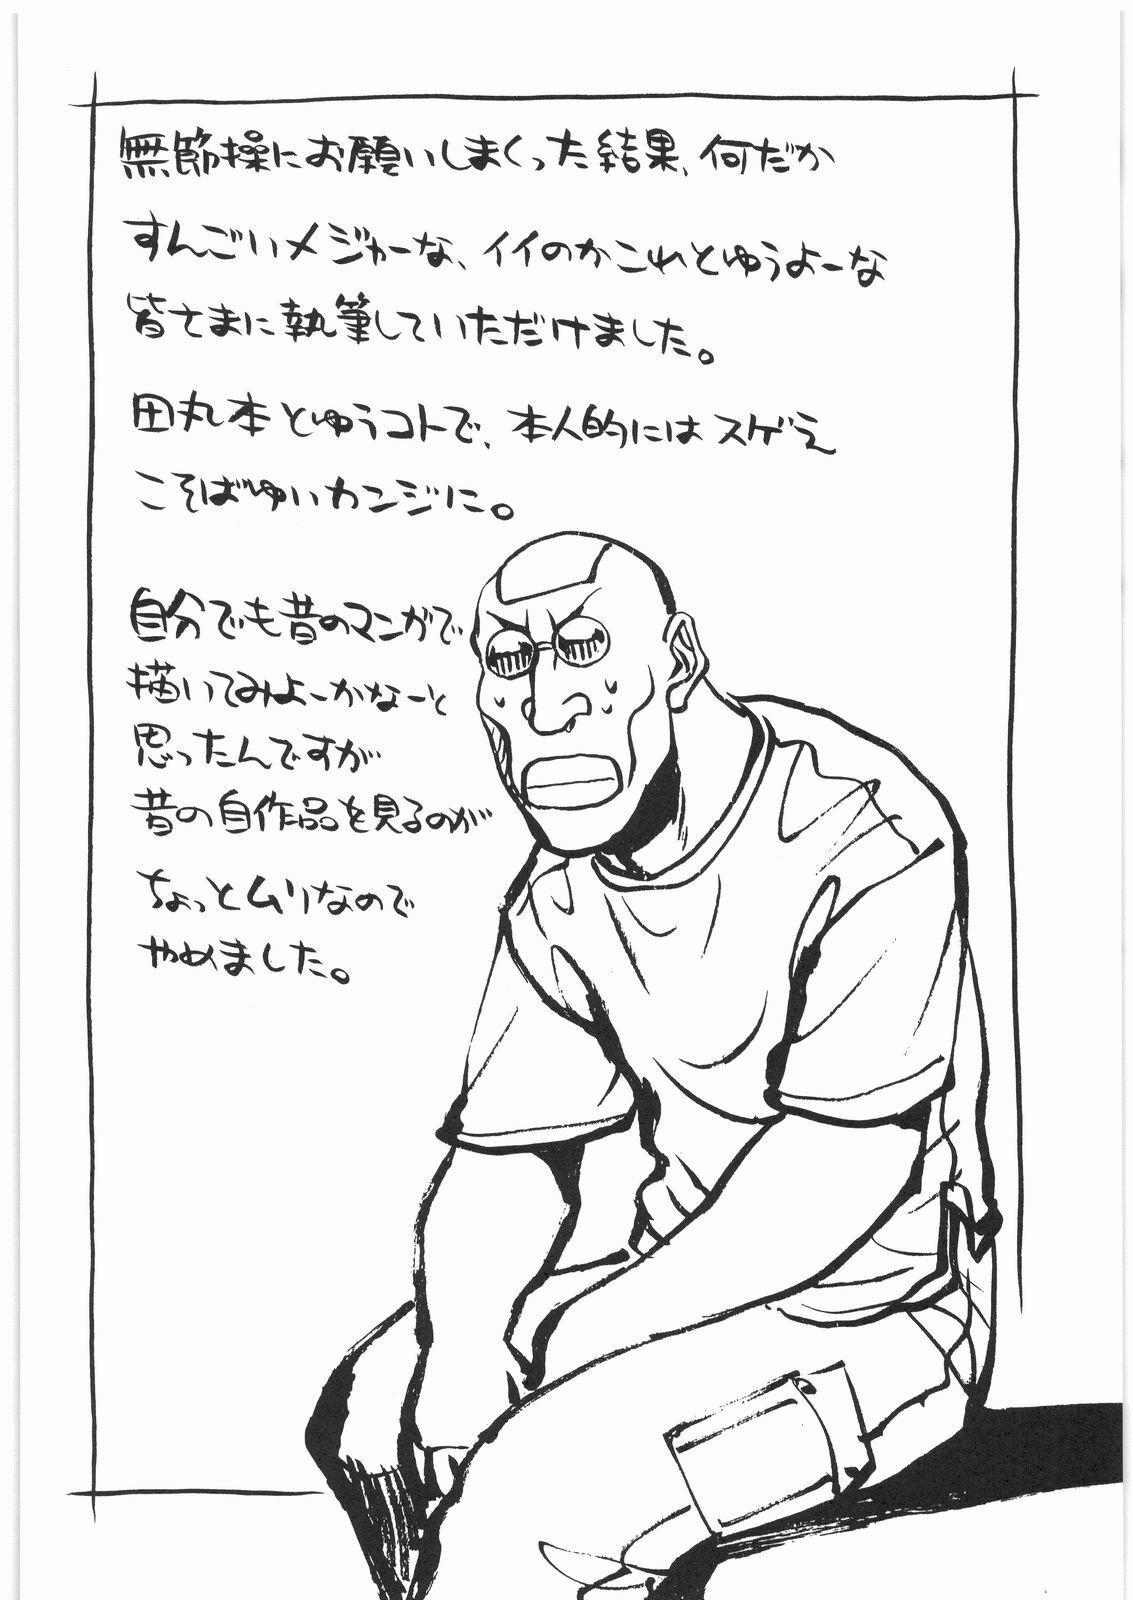 無節操にお願いしまくった結果、何だか
すんごいメジャーな、イイのかこれとゆうよーな
皆さまに執筆していただけました。
田丸本とゆうコトで、本人的にはスゲえ
こそばゆいカンジに。
自分でも昔のマンガで
描いてみよーかなーと
思ったんですが
昔の自作品を見るのが
ちょっとムリなので
やめました。